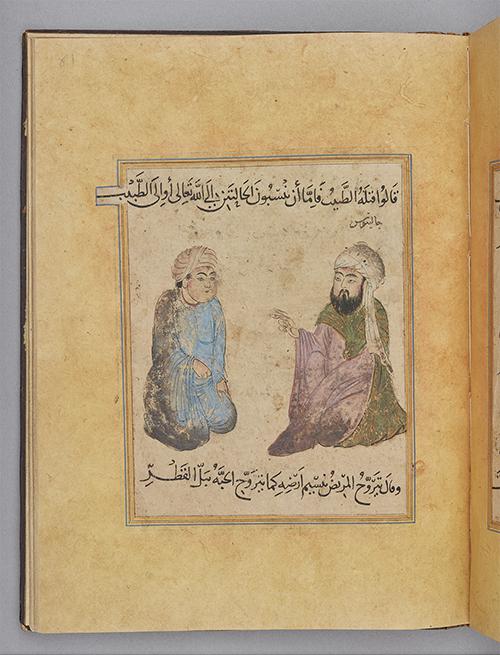 قالوا قتله الطبيب فإمّا أن تنسبون الحالتين إلى الله تعالى أو إلى الطّبيب
جالينوس
وقال يتروّح المريض بنسيم ارضه كما تتروّح الحبّه ببلّ القطر